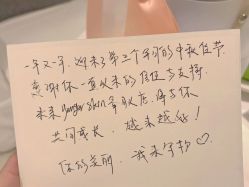 一年又一年，迎来了第三个年头的中秋佳节
感谢你一直以来的信任与支持
未来 younger skin 拿取店 将与你
共同成长，越来越好！
你的美丽，我来守护♡